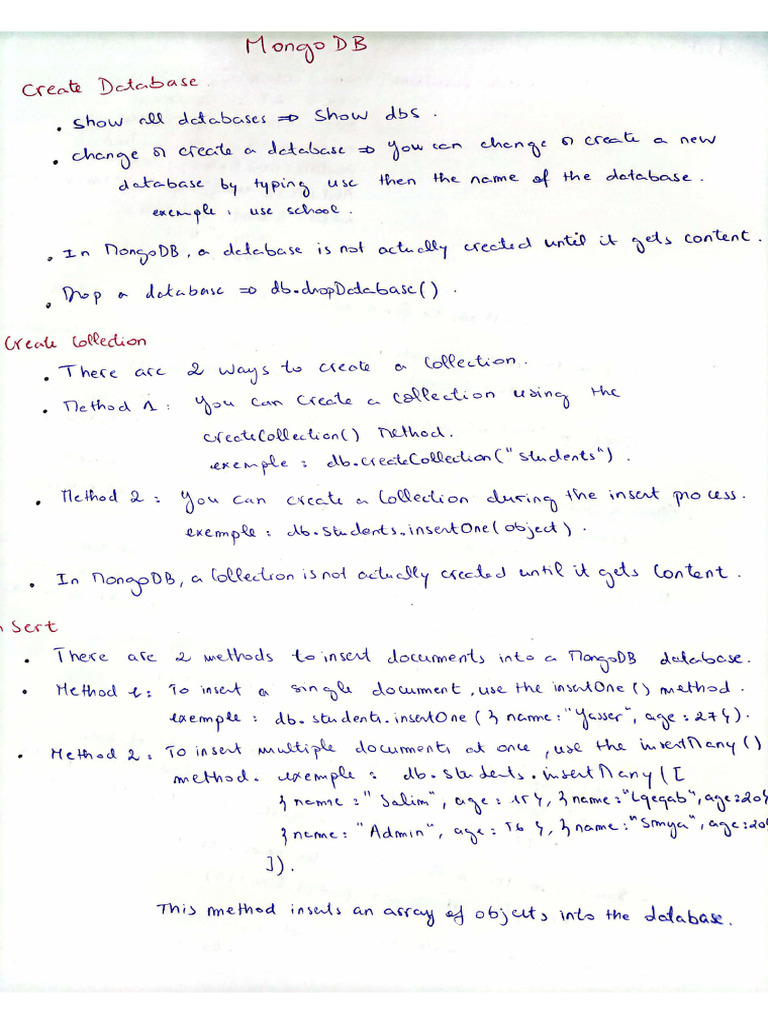 MongoDB
Create Database.
. Show all databases => Show dbs .
. change or create a database => you can change or create a new
database by typing use then the name of the database .
exemple : use school .
. In MongoDB, a database is not actually created until it gets content .
. Drop a database => db.dropDatabase() .
Create Collection
. There are 2 ways to create a Collection .
. Method 1 : You can create a collection using the
createCollection() method.
exemple : db.createCollection("students") .
. Method 2 : You can create a Collection during the insert process .
exemple : db.students.insertOne(object) .
. In MongoDB, a Collection is not actually created until it gets Content .
n Sert
. There are 2 methods to insert documents into a MongoDB database .
. Method 1 : To insert a single document, use the insertOne() method .
exemple : db.students.insertOne({name:"Yasser", age:27}) .
. Method 2 : To insert multiple documents at once, use the insertMany()
method . exemple : db.students.insertMany([
{name:"Salim", age: 15}, {name: age:20}
{name:"Admin", age: 56}, {name: age:20
]) .
This method inserts an array of objects into the database .